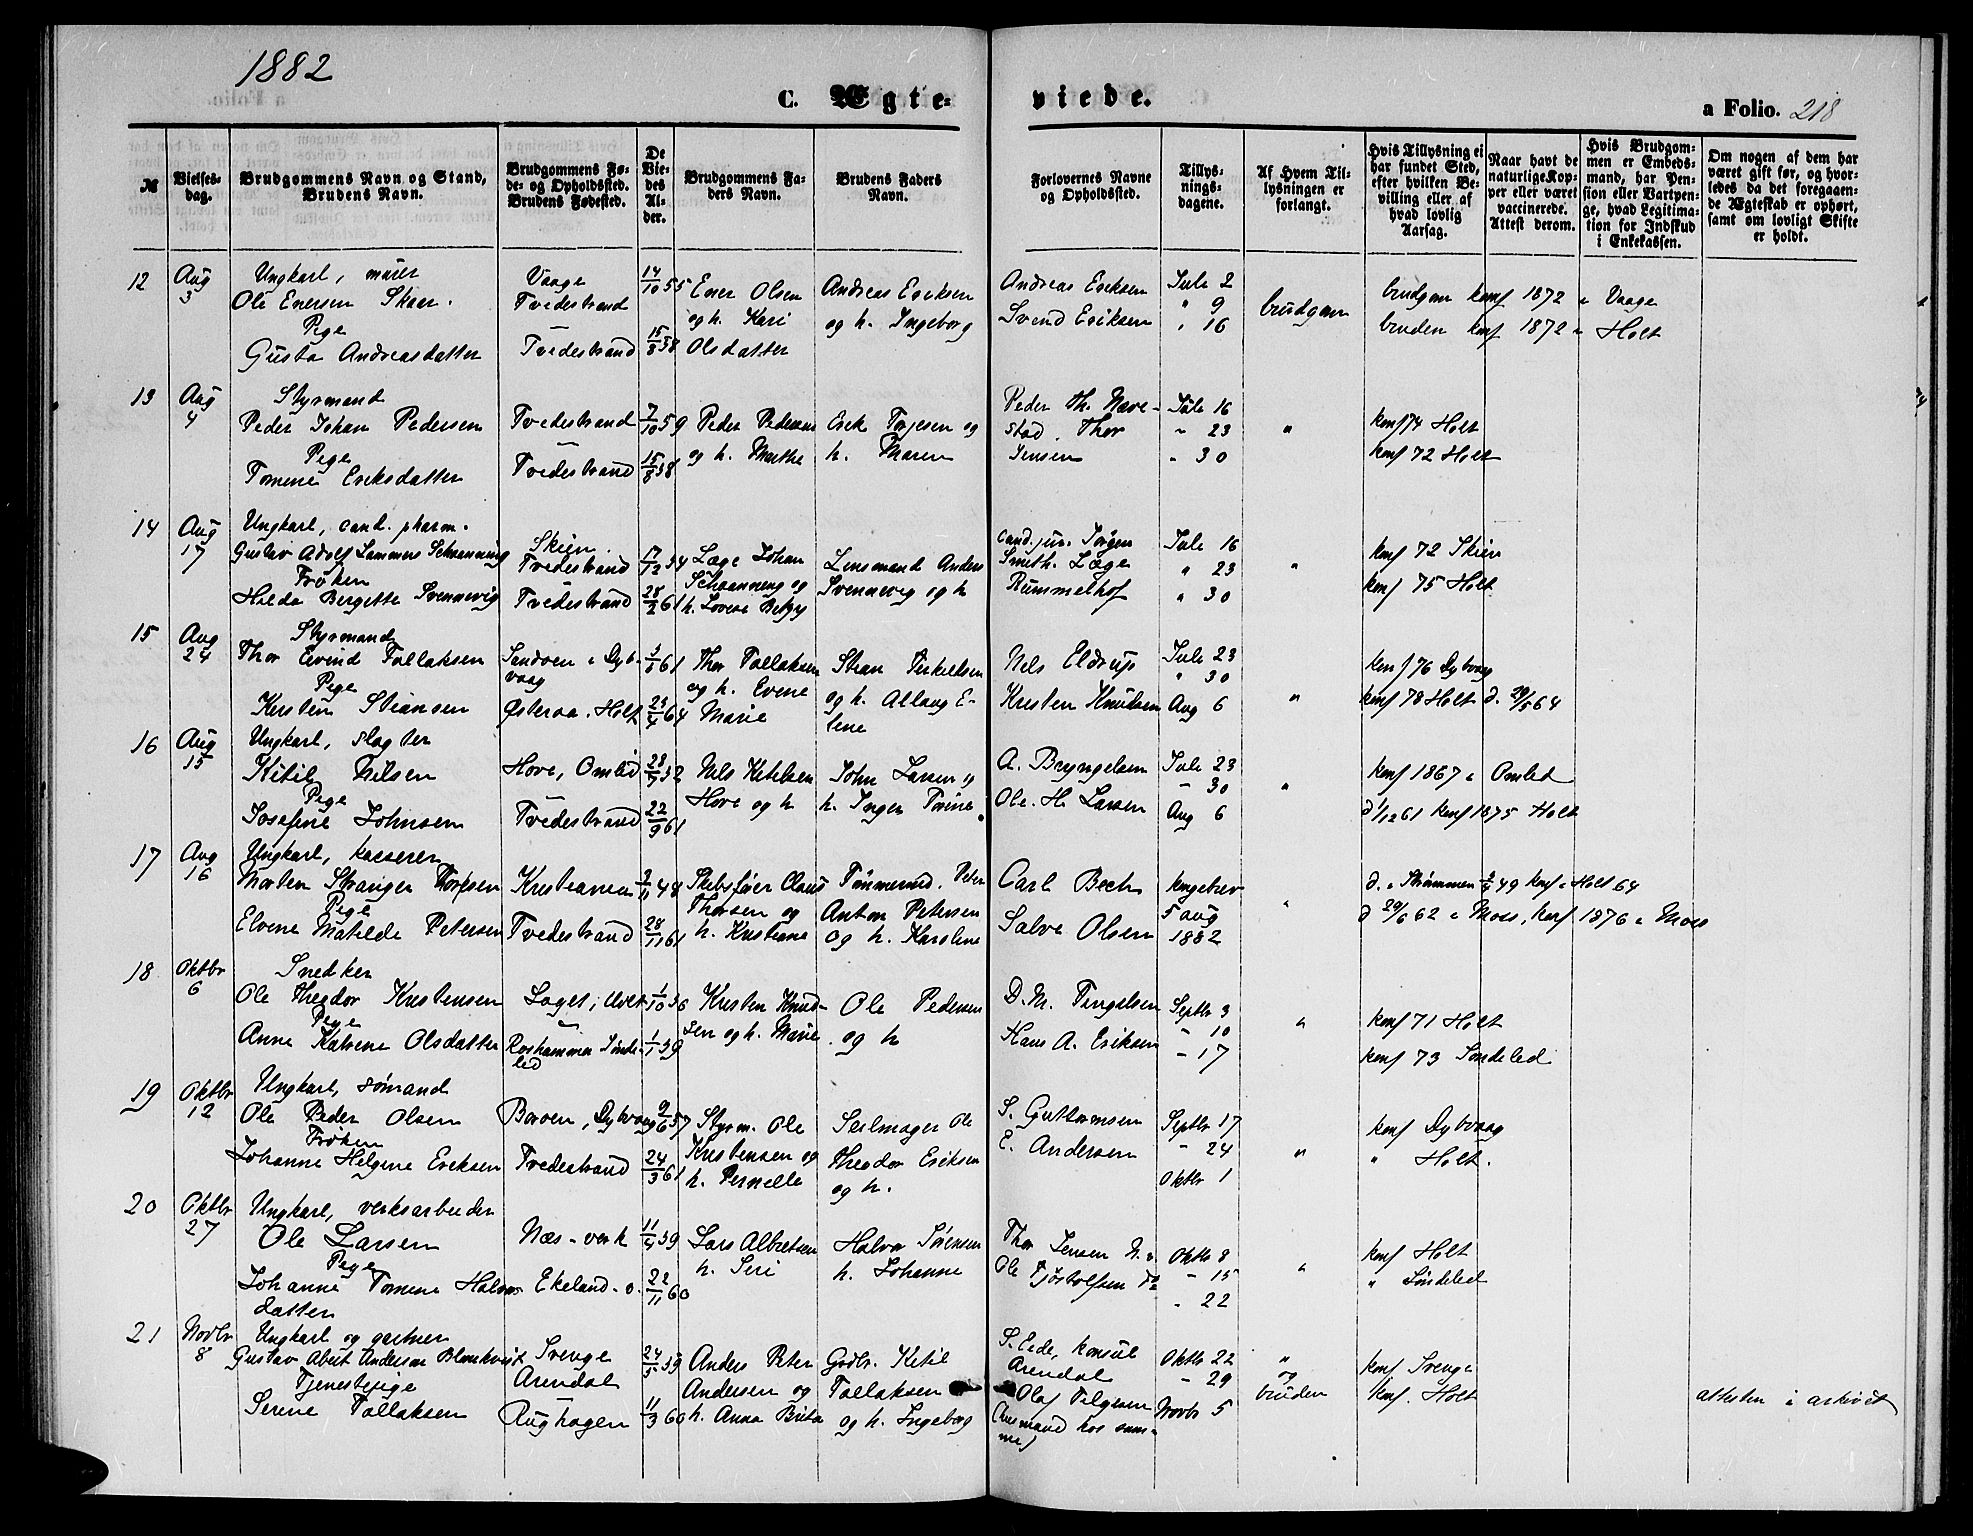 1882
C. Ægte-
viede.
a Folio. 218
№
Vielses-
dag.
Brudgommens Navn og Stand,
Brudens Navn.
Brudgommens Fø-
de- og Opholdssted.
Brudens Fødested.
De
Vie-
des
Al-
der.
Brudgommens Fa-
ders Navn.
Brudens Faders
Navn.
Forlovernes Navne
og Opholdssted.
Tillys-
nings-
dagene.
Af Hvem Til-
lysningen er
forlangt.
Hvis Tillysning ei
har fundet Sted,
efter hvilken Be-
villing eller af
hvad lovlig
Aarsag.
Naar havt de
naturlige Kop-
per eller været
vaccinerede.
Attest derom.
Hvis Brudgom-
men er Embeds-
mand, har Pen-
sion eller Vartpen-
ge, hvad Legitima-
tion for Indskud
i Enkekassen.
Om nogen af dem har
været gift før, og hvor-
ledes da det foregaaen-
de Ægteskab er ophørt,
samt om lovligt Skifte
er holdt.
12
Aug
3
Ungkarl, murer
Ole Enersen Skaar.
Pige
Gusta Andreasdatter
Vaage
Tvedestrand
Tvedestrand
14/10 55
15/8 58
Ener Olsen
og h. Kari
Olsdatter
Andreas Eriksen
og h. Ingeborg
Andreas Eriksen
Svend Eriksen
Jule 2
" 9
" 16
brudgom
brudgom konf 1872 i Vaage
bruden konf 1872 i Holt
13
Aug
4
Styrmand
Peder Johan Pedersen
Pige
Tomine Eriksdatter
Tvedestrand
Tvedestrand
7/10 59
15/8 58
Peder Pedersen
og h. Marthe
Erik Terjesen og
h. Maren
Peder Th. Næve-
stad. Thor
Jensen
Jule 16
" 23
" 30
"
konf 74 Holt
konf 72 Holt
14
Aug
17
Ungkarl, cand. pharm.
Gustav Adolf Lammers Schanning
Frøken
Hulda Bergette Svennevig
Skien.
Tvedestrand
Tvedestrand
17/12 54
28/2 61
Læge Johan
Schaanning og
h. Lovise Betzy
Lensmand Anders
Svennevig og h
cand. jur. Jørgen
Smith. Læge
Rummelhof
Jule 16
" 23
" 30
"
konf 72 Skien
konf 75 Holt
15
Aug
24
Styrmand
Thor Eivind Tallaksen
Pige
Kirsten Stiansen
Sandøen i Dyb-
vaag
Østeraa. Holt
61
23/4 64
Thor Tallaksen
og h. Evine
Marie
Stian Terkelsen
og h. Aslaug E-
line
Nils Eldrup
Kristen Knudsen
Jule 23
" 30
Aug 6
"
konf 76 Dybvaag
konf 78 Holt d. 29/5 64
16
Aug
15
Ungkarl, slagter
Kitil Nilsen
Pige
Josefine Johnsen
Hove, Omlid
Tvedestrand
28/7 52
22/9 61
Nils Ketelsen
Hove og h
John Larsen og
h. Inger Tomine
A. Bryngelsen
Ole. H. Larsen
Jule 23
" 30
Aug 6
"
konf 1867 i Omlid
d 1/12 61 konf 1875 Holt
17
Aug
16
Ungkarl, kasserer
Morten Stranger Thorsen
Pige
Elvine Matilde Petersen
Kristiania
Tvedestrand
48
28/11 61
Skibsfører Claus
Thorsen og
h. Kristiane
Tømmermd. Peter
Anton Petersen
og h. Karoline
Carl Bech
Salve Olsen
kongebrev
5 aug
1882
"
d. i Strømmen 49 konf i Holt 64
d 29/6 62 i Moss, konf 1876 i Moss
18
Oktbr
6
Snedker
Ole Theodor Kristensen
Pige
Anne Katrine Olsdatter
Laget, Holt
Røshammer Sønde-
led
1/10 56
1/1 59
Kristen Knud-
sen og h. Marie
Ole Pedersen
og h
D. M. Tingelsen
Hans A. Eriksen
Septbr 3
" 10
" 17
"
konf 71 Holt
konf 73 Søndeled
19
Oktbr
12
Ungkarl, sømand
Ole Peder Olsen
Frøken
Johanne Helgine Eriksen
Borøen, Dybvaag
Tvedestrand
9/6 57
24/3 61
Styrm. Ole
Kristensen og
h. Pernelle
Seilmager Ole
Theodor Eriksen
og h.
S. Guttormsen
E. Andersen
Septbr 17
" 24
Oktbr 1
"
konf Dybvaag
" Holt.
20
Oktbr
27
Ungkarl, verksarbeider
Ole Larsen
Pige
Johanne Tomine Halvors-
datter
Næs-verk
Ekeland. o.
11/4 59
22/11 60
Lars Albretsen
h. Siri
Halvor Sørensen
h. Johanne
Thor Jensen N. v.
Ole Tjøstolfsen do
Oktbr 8
" 15
" 22
"
konf Holt
" Søndeled
21
Novbr
8
Ungkarl og gartner
Gustav Albert Andersen Blomkvist
Tjenestepige
Serine Tallaksen
Sverige
Arendal
Aughagen
24/5 59
11/3 60
Anders Peter
Andersen og
h. Anna Brita
Grdbr. Ketil
Tallaksen
og h. Ingeborg
S. Eide, konsul
Arendal
Olaf Telgesen
(husmand hos sam-
me)
Oktbr 22
" 29
Novbr 5
"
og
bruden
konf Sverige
konf. Holt
attesten i arkivet